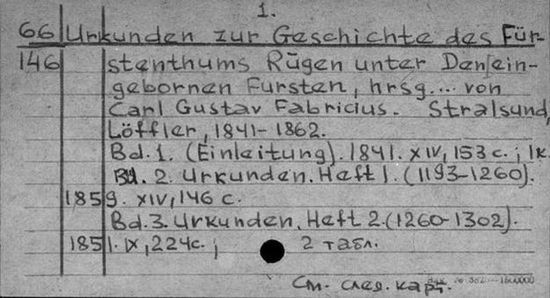 1.
66 Urkunden zur Geschichte des Für-
146 stenthums Rügen unter Den ein-
gebornen Fursten, hrsg... von
Carl Gustav Fabricius. Stralsund,
Löffler, 1841-1862.
Bd. 1. (Einleitung). 1841. XIV, 153 с.; 1к
Bd. 2. Urkunden. Heft 1. (1193-1260).
1859. XIV, 146 с.
Bd. 3. Urkunden. Heft 2 (1260-1302).
1851. IX, 224с.; 2 табл.
См. след. карт.